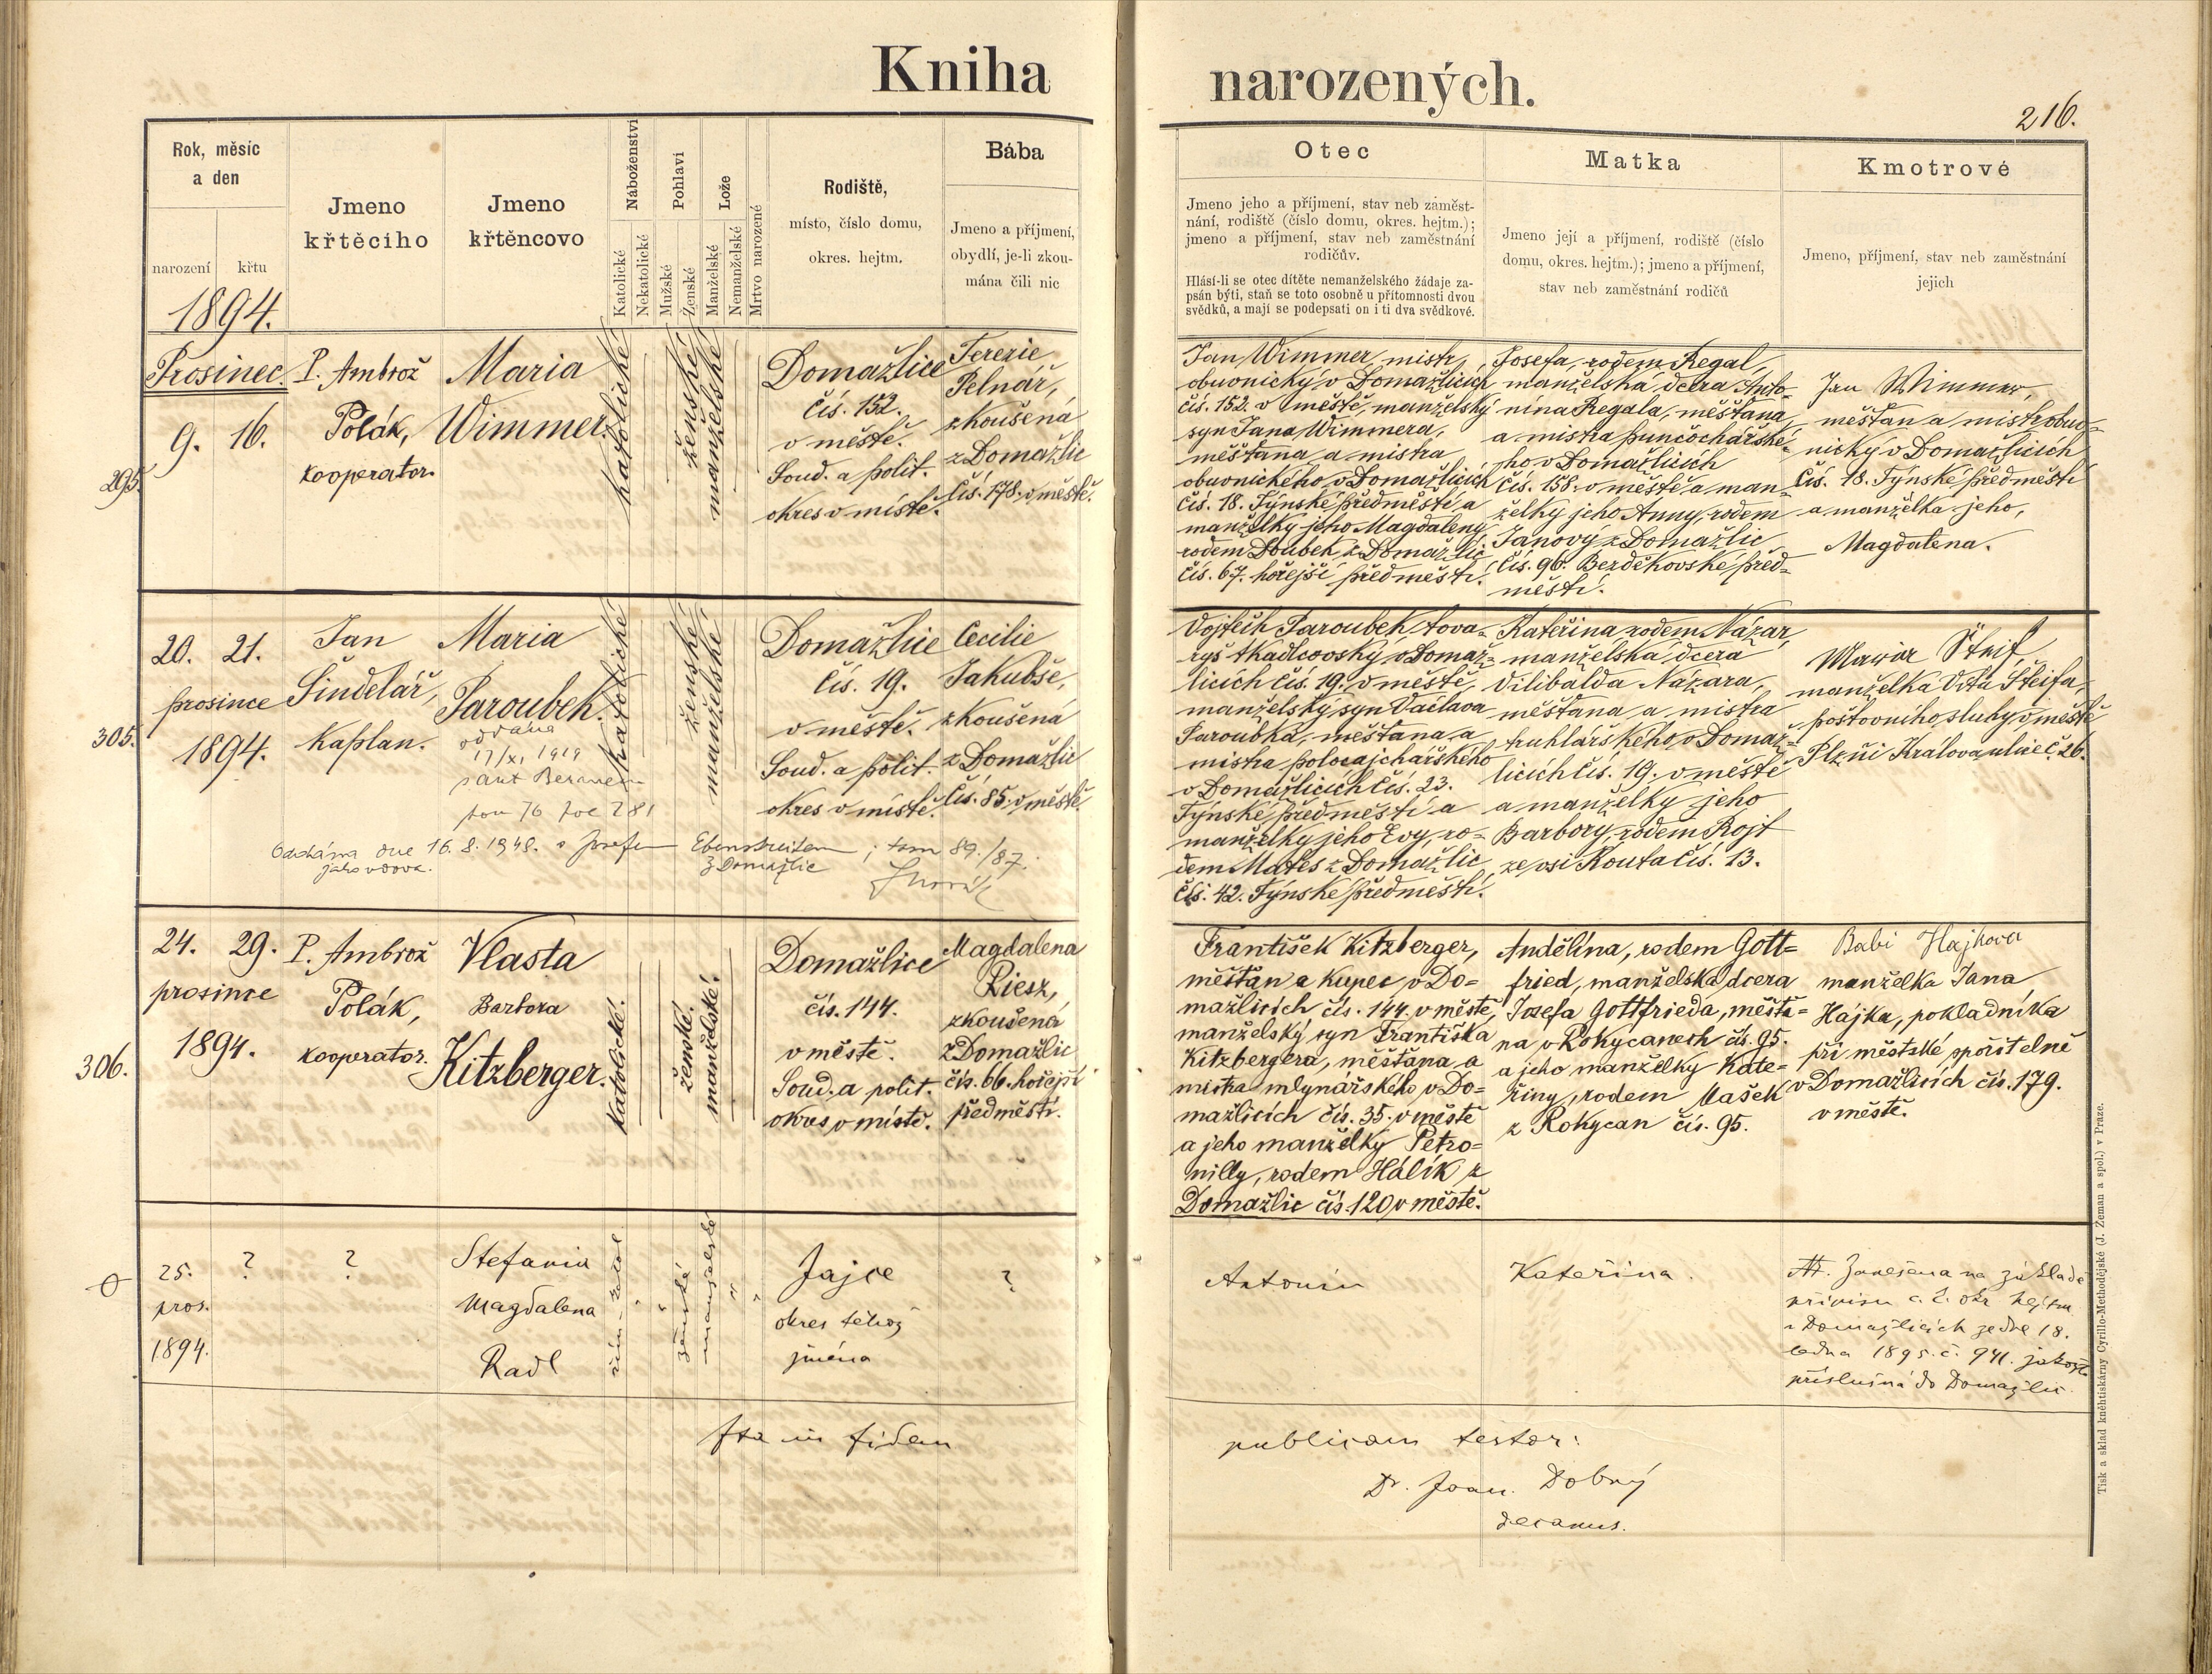 Kniha narozených.
216.
Rok, měsíc
a den
narození
křtu
Jmeno
křtěcího
Jmeno
křtěncovo
Náboženství
Katolické
Nekatolické
Pohlaví
Mužské
Ženské
Lože
Manželské
Nemanželské
Mrtvo narozené
Rodiště,
místo, číslo domu,
okres. hejtm.
Bába
Jmeno a příjmení,
obydlí, je-li zkou-
mána čili nic
Otec
Jmeno jeho a příjmení, stav neb zaměst-
nání, rodiště (číslo domu, okres. hejtm.);
jmeno a příjmení, stav neb zaměstnání
rodičův.
Hlásí-li se otec dítěte nemanželského žádaje za-
psán býti, staň se toto osobně u přítomnosti dvou
svědků, a mají se podepsati on i ti dva svědkové.
Matka
Jmeno její a příjmení, rodiště (číslo
domu, okres. hejtm.); jmeno a příjmení,
stav neb zaměstnání rodičů
Kmotrové
Jmeno, příjmení, stav neb zaměstnání
jejich
1894.
295.
Prosinec.
9. 16.
P. Ambrož
Polák,
kooperator.
Maria
Wimmer.
katolické
ženské
manželské
Domažlice
čís. 152.
v městě.
Soud. a polit.
okres v místě.
Terezie
Pelnář,
zkoušená
z Domažlic
čís. 178. v městě.
Jan Wimmer, mistr
obuvnický v Domažlicích
čís. 152. v městě, manželský
syn Jana Wimmera,
měšťana a mistra
obuvnického v Domažlicích
čís. 18. Týnské předměstí a
manželky jeho Magdaleny
rodem Doubek z Domažlic
čís. 67. hořejší předměstí.
Josefa, rodem Regal,
manželská dcera Anto-
nína Regala, měšťana
a mistra punčochářské-
ho v Domažlicích
čís. 158. v městě a man-
želky jeho Anny, rodem
Janový z Domažlic
čís. 96. Bezděkovské před-
městí.
Jan Wimmer,
měšťan a mistr obuv-
nický v Domažlicích
čís. 18. Týnské předměstí
a manželka jeho,
Magdalena.
305.
20. 21.
prosince
1894.
Jan
Šindelář,
kaplan.
Maria
Paroubek.
oddána
17/XI 1919
katolické
ženské
manželské
Domažlice
čís. 19.
v městě.
Soud. a polit.
okres v místě.
Cecilie
Jakubše,
zkoušená
z Domažlic
čís. 85. v městě.
dne 16. 8. 1948. s Josefem Ebenstreitem; tom 89./87.
jako vdova.
z Domažlic
Vojtěch Paroubek, tova-
ryš tkadlcovský v Domaž-
licích čís. 19. v městě,
manželský syn Václava
Paroubka, měšťana a
mistra polocajchářského
v Domažlicích čís. 23.
Týnské předměstí a
manželky jeho Evy, ro-
dem Mateš z Domažlic
čís. 42. Týnské předměstí.
Kateřina, rodem Názar,
manželská dcera
Vilibalda Názara,
měšťana a mistra
truhlářského v Domaž-
licích čís. 19. v městě
a manželky jeho
Barbory, rodem Rojt
ze vsi Kouta čís. 13.
Šteif
manželka Víta Šteifa,
poštovního sluhy v městě
Plzni Králova ulice č. 26.
306.
24. 29.
prosince
1894.
P. Ambrož
Polák,
kooperator.
Vlasta
Barbora
Kitzberger.
katolické.
ženské.
manželské.
Domažlice
čís. 144.
v městě.
Soud. a polit.
okres v místě.
Magdalena
Riesz,
zkoušená
z Domažlic
čís. 66. hořejší
předměstí.
František Kitzberger,
měšťan a kupec v Do-
mažlicích čís. 144. v městě,
manželský syn Františka
Kitzbergera, měšťana a
mistra mlynářského v Do-
mažlicích čís. 35. v městě
a jeho manželky Petro-
nilly, rodem Hálík z
Domažlic čís. 120 v městě.
Andělína, rodem Gott-
fried, manželská dcera
Josefa Gottfrieda, měšťa-
na v Rokycanech čís. 95.
a jeho manželky Kate-
řiny, rodem Mašek
z Rokycan čís. 95.
Babi Hajkova
manželka Jana
Hájka, pokladníka
při městské spořitelně
v Domažlicích čís. 179.
v městě.
25.
pros.
1894.
?
?
Stefania
Magdalena
Radl
ženské
manželské
Jajce
okres téhož
jména
?
Antonín
Kateřina.
NB. Zanešena na základě
přípisu c. k. okr. hejtm.
v Domažlicích ze dne 18.
ledna 1895 č. 941. jakožto
příslušná do Domažlic.
Ita in fidem publicam testor:
Dr. Joan. Dobrý
decanus.
Tisk a sklad kněhtiskárny Cyrillo-Methodějské (J. Zeman a spol.) v Praze.